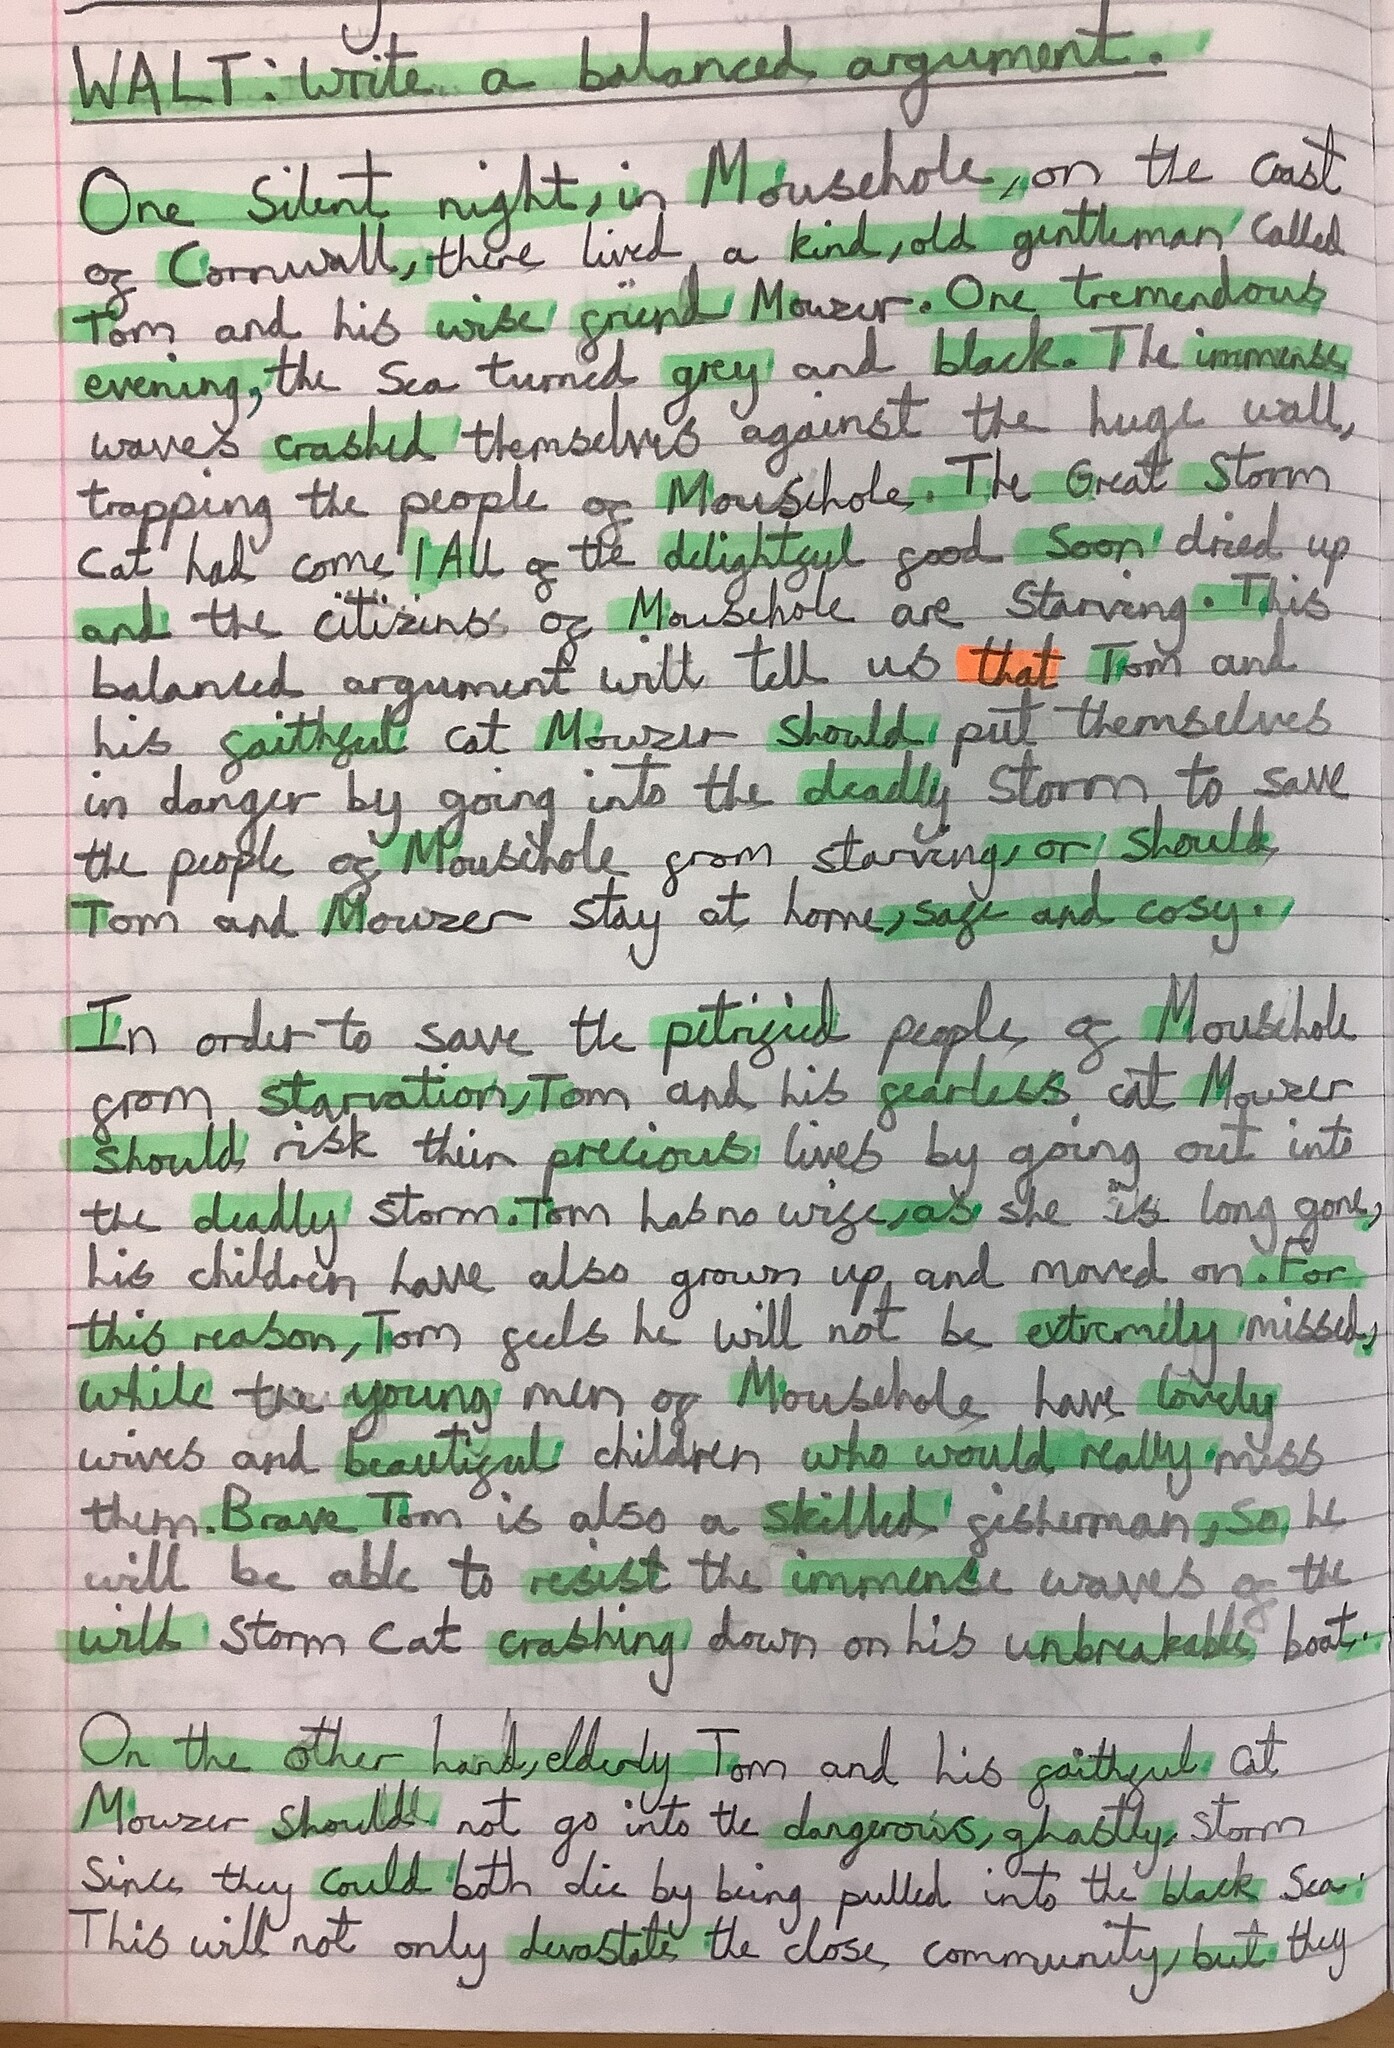 WALT: Write a balanced argument.
One Silent night, in Mousehole, on the coast
of Cornwall, there lived a kind, old gentleman called
Tom and his wise friend Mowzer. One tremendous
evening, the Sea turned grey and black. The immense
waves crashed themselves against the huge wall,
trapping the people of Mousehole. The Great Storm
Cat had come! All of the delightful food Soon dried up
and the citizins of Mousehole are Starving. This
balanced argument will tell us that Tom and
his faithful cat Mowzer should put themselves
in danger by going into the deadly storm to save
the people of Mousehole from starving, or should
Tom and Mowzer stay at home, safe and cosy.
In order to save the petrified people of Mousehole
from starvation, Tom and his fearless cat Mowzer
should risk their precious lives by going out into
the deadly storm. Tom has no wife, as she is long gone,
his children have also grown up and moved on. For
this reason, Tom feels he will not be extremely missed,
while the young men of Mousehole have lovely
wives and beautiful children who would really miss
them. Brave Tom is also a skilled fisherman, so he
will be able to resist the immense waves of the
wild Storm Cat crashing down on his unbreakable boat.
On the other hand, elderly Tom and his faithful cat
Mowzer should not go into the dangerous, ghastly, storm
Since they could both die by being pulled into the black Sea.
This will not only devastate the close community, but they